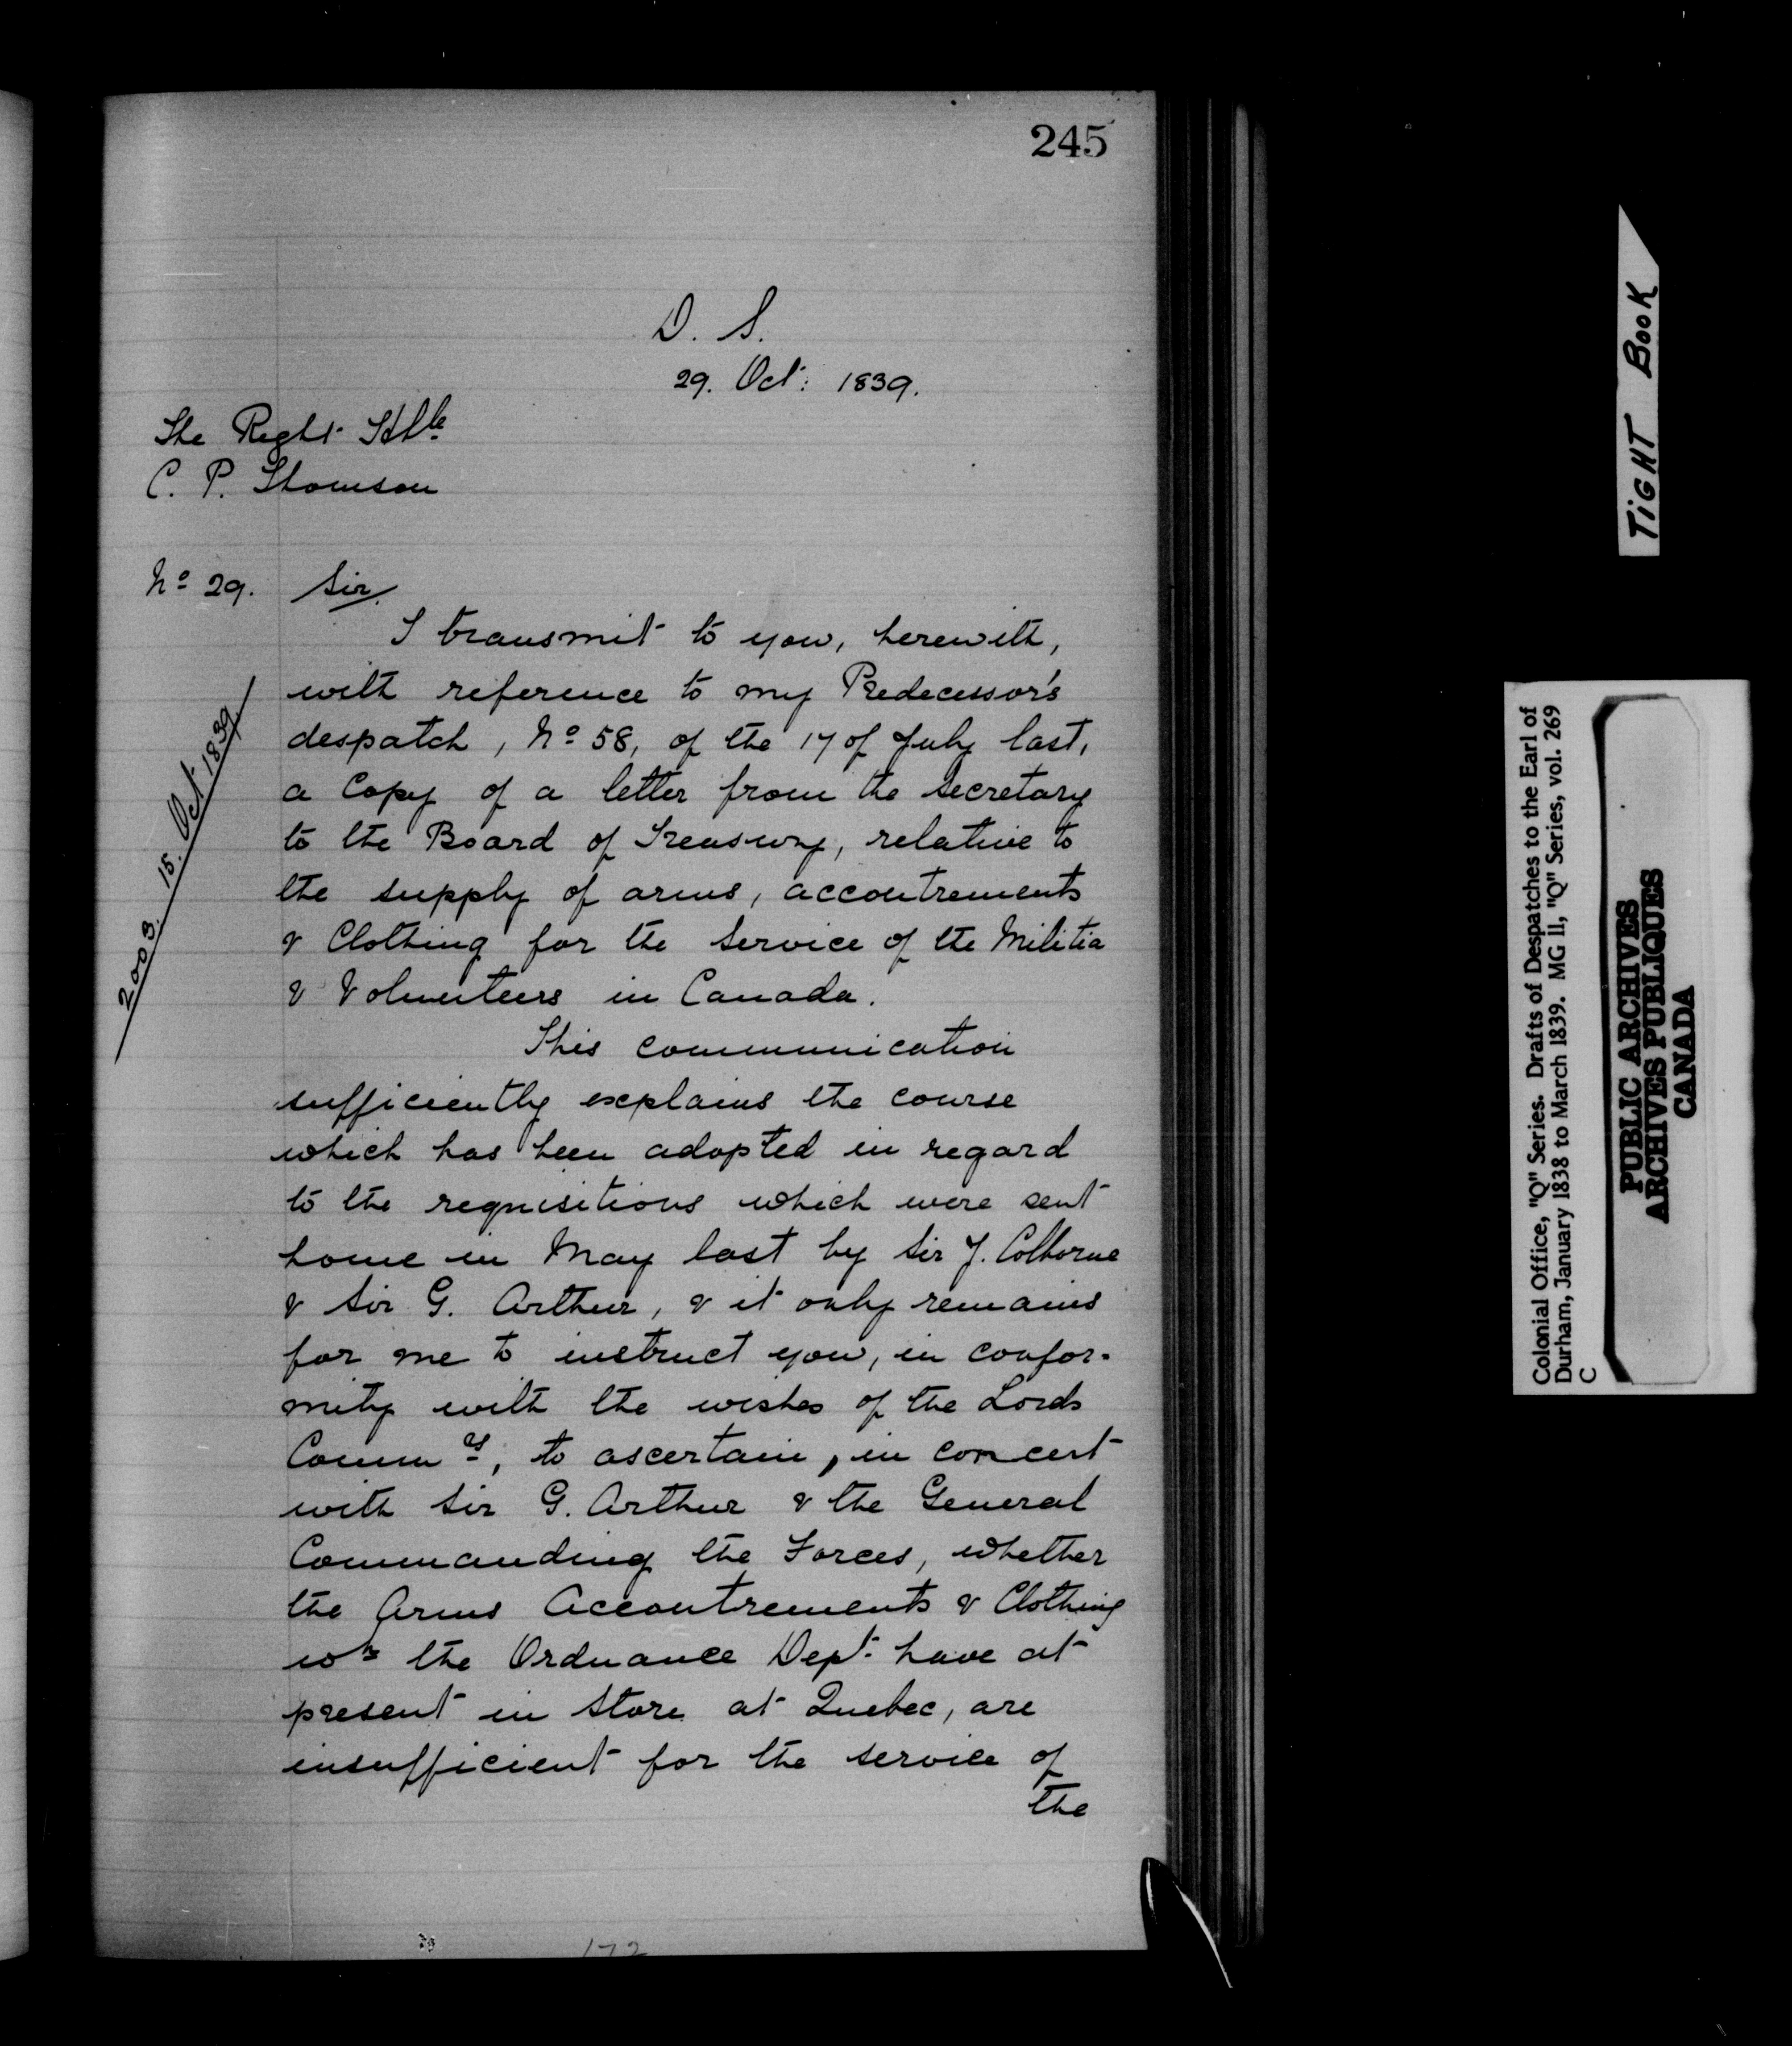 245
D. S.
29. Oct: 1839.
The Right Hble
C. P. Thomson
No 29. Sir,
I transmit to you, herewith,
with reference to my Predecessor's
despatch, No 58, of the 17 of July last,
a Copy of a letter from the Secretary
to the Board of Treasury, relative to
the supply of arms, accoutrements
& Clothing for the Service of the Militia
& Volunteers in Canada.
2003. 15. Oct 1839
This communication
sufficiently explains the course
which has been adopted in regard
to the requisitions which were sent
home in May last by Sir J. Colborne
& Sir G. Arthur, & it only remains
for me to instruct you, in confor-
mity with the wishes of the Lords
Commrs, to ascertain, in concert
with Sir G. Arthur & the General
Commanding the Forces, whether
the Arms Accoutrements & Clothing
wh the Ordnance Dept. have at
present in Store at Quebec, are
insufficient for the service of
the
172
TIGHT BOOK
Colonial Office, "Q" Series. Drafts of Despatches to the Earl of
Durham, January 1838 to March 1839. MG 11, "Q" Series, vol. 269
C
PUBLIC ARCHIVES
ARCHIVES PUBLIQUES
CANADA